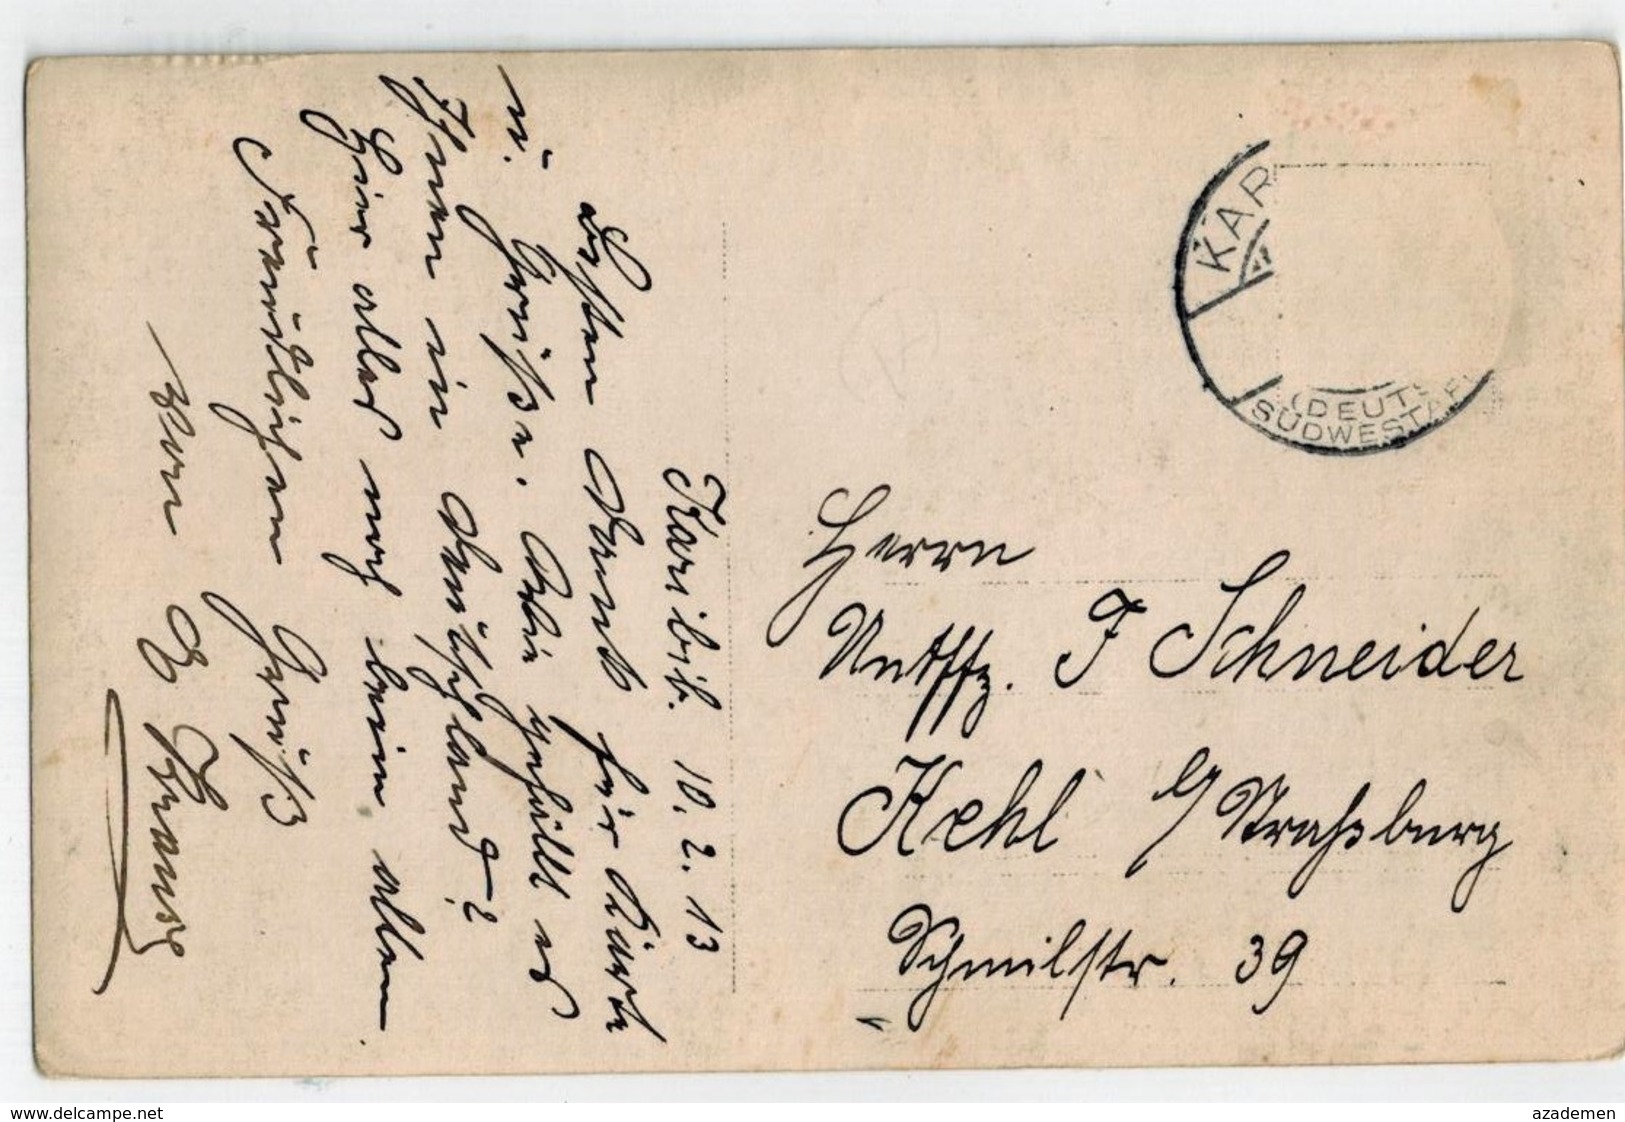 Karibib. 10.2.13
Besten Dank für Karte
u. Grüße. Wie gefällt es
Ihnen in Deutschland?
Hier alles noch beim alten.
Freundlichen Gruß
von
KAR
(DEUTS
SÜDWESTAF
Herrn
Untffz. F Schneider
Kehl b/ Straßburg
39
www.delcampe.net
azademen